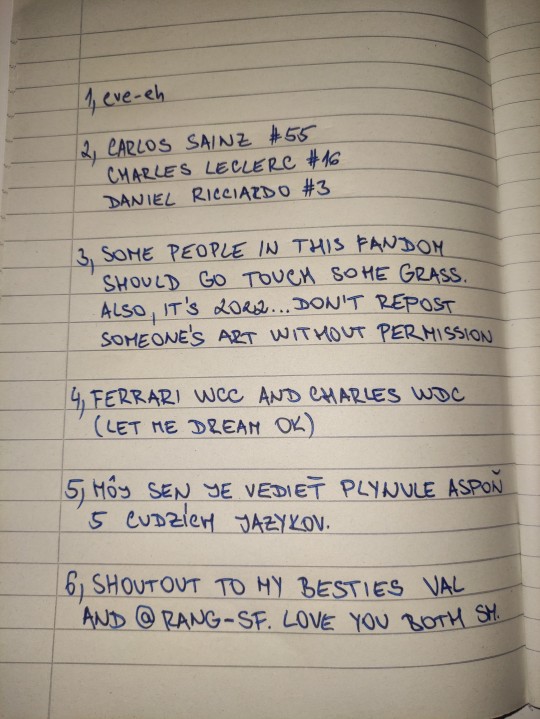 1, eve-eh
2, CARLOS SAINZ #55
CHARLES LECLERC #16
DANIEL RICCIARDO #3
3, SOME PEOPLE IN THIS FANDOM
SHOULD GO TOUCH SOME GRASS.
ALSO, IT'S 2022... DON'T REPOST
SOMEONE'S ART WITHOUT PERMISSION
4, FERRARI WCC AND CHARLES WDC
(LET ME DREAM OK)
5, MÔJ SEN JE VEDIEŤ PLYNULE ASPOŇ
5 CUDZÍCH JAZYKOV.
6, SHOUTOUT TO MY BESTIES VAL
AND @RANG-SF. LOVE YOU BOTH SM.